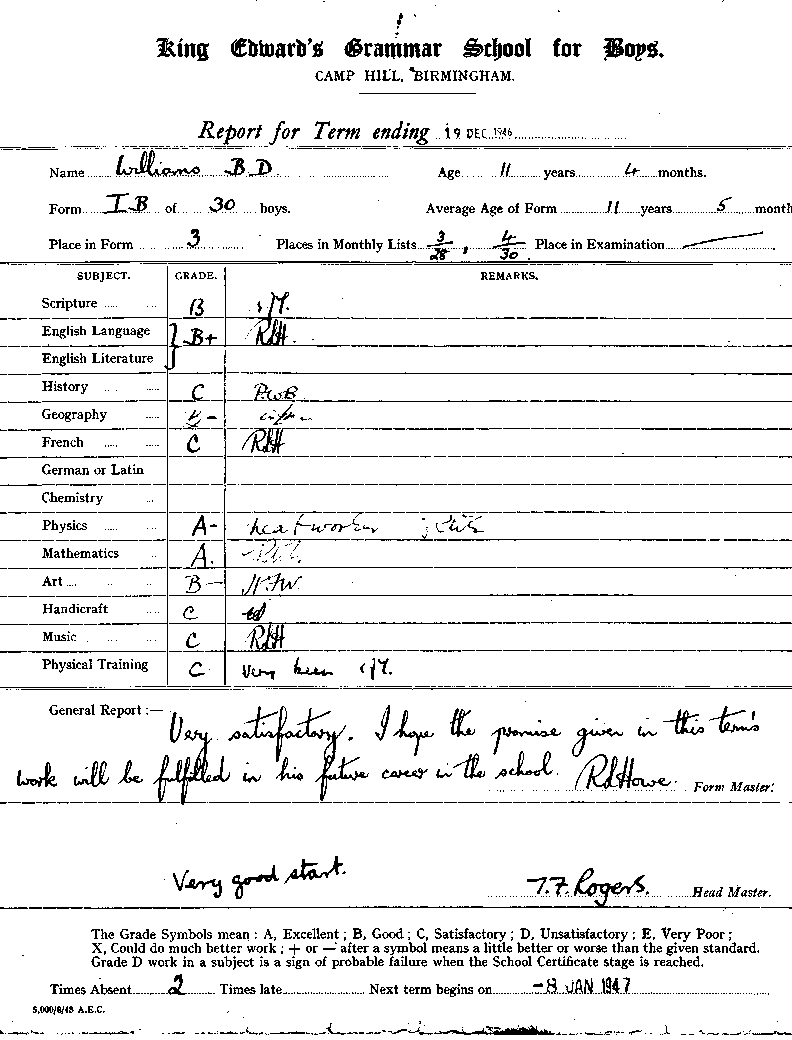 King Edward's Grammar School for Boys.
CAMP HILL, BIRMINGHAM.
Report for Term ending 19 DEC 1946
Name Williams B D Age 11 years 4 months.
Form I B of 30 boys. Average Age of Form 11 years 5 month
Place in Form 3 Places in Monthly Lists 3/28, 4/30 Place in Examination
SUBJECT. GRADE. REMARKS.
Scripture B
English Language B+ RDH.
English Literature
History C PWB
Geography
French C RDH
German or Latin
Chemistry
Physics A- neat worker
Mathematics A.
Art B-
Handicraft C
Music C RDH
Physical Training C Very keen
General Report :— Very satisfactory. I hope the promise given in this term's
work will be fulfilled in his future career in the school. RDHowe. Form Master.
Very good start. T.F. Rogers. Head Master.
The Grade Symbols mean : A, Excellent ; B, Good ; C, Satisfactory ; D, Unsatisfactory ; E, Very Poor ;
X, Could do much better work ; + or — after a symbol means a little better or worse than the given standard.
Grade D work in a subject is a sign of probable failure when the School Certificate stage is reached.
Times Absent 2 Times late Next term begins on -8 JAN 1947
5,000/6/43 A.E.C.